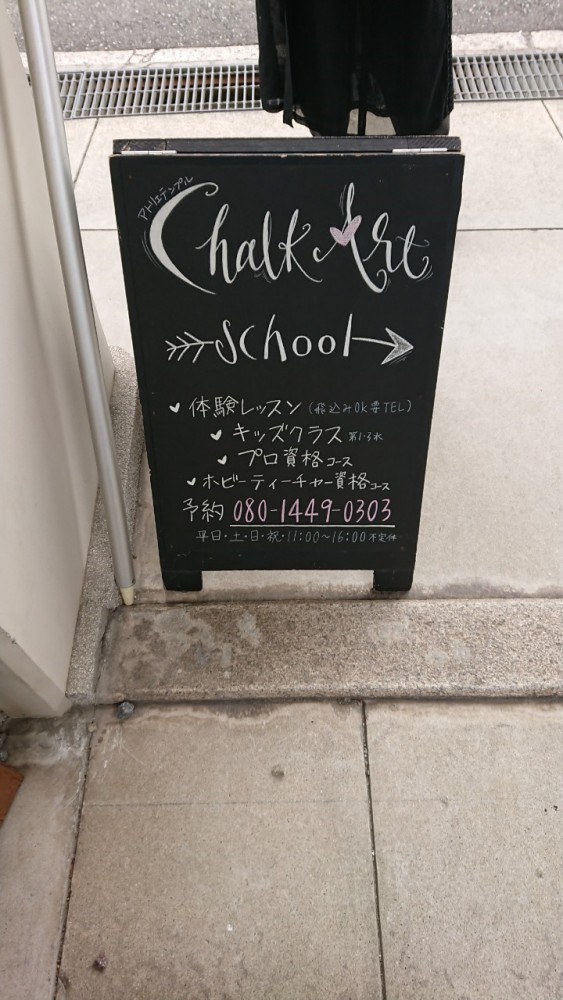 アトリエテンプル
Chalk Art
school
体験レッスン (飛込みOK要TEL)
キッズクラス 第1・3水
プロ資格コース
ホビーティーチャー資格コース
予約 080-1449-0303
平日・土・日・祝・11:00～16:00 不定休